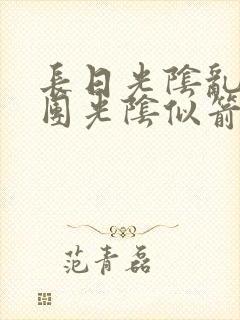 長日光陰亂
團光陰似箭
范青磊